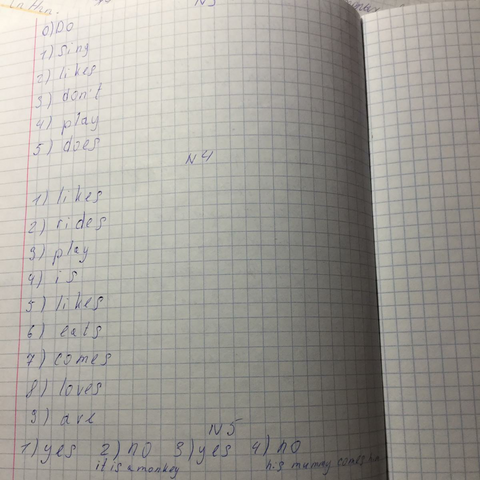 N3
0) Do
1) sing
2) likes
3) don't
4) play
5) does
N4
1) likes
2) rides
3) play
4) is
5) likes
6) eats
7) comes
8) loves
9) are
N5
1) yes 2) no 3) yes 4) no
it is a monkey his mummy comes